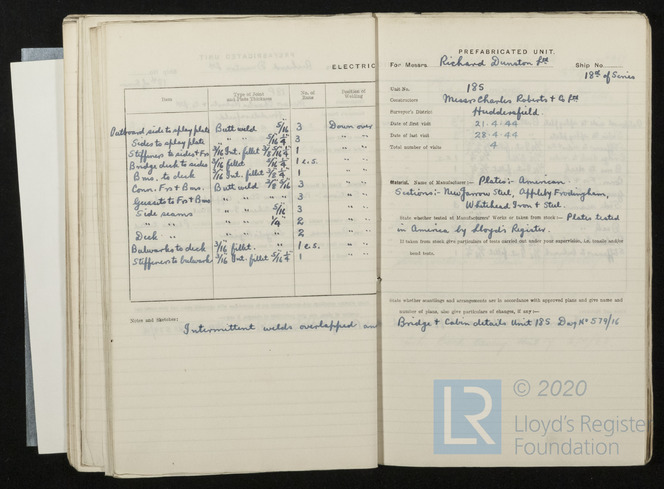 ELECTRIC
Item
Type of Joint and Plate Thickness
No. of Runs
Position of Welding
Outboard side to splay plate Butt weld 5/16" 3 Down over
Sides to splay plate " " 5/16" 1/4" 3 " "
Stiffeners to sides & Frs 3/16 Int. fillet 3/8" 5/16" 1/4" 1 " "
Bridge deck to sides 3/16 fillet 5/16" 1/4" 1 e.s. " "
Bms. to deck 3/16 Int. fillet 3/8" 1/4" 1 " "
Conn. Frs & Bms. Butt weld 3/8" 5/16" 3 " "
Gussets to Frs & Bms " " " 3 " "
Side seams " " 5/16" 3 " "
" " " " 1/4" 2 " "
Deck " " " " 2 " "
Bulwarks to deck 3/16 fillet. " 1 e.s. " "
Stiffeners to bulwark 3/16 Int. fillet 5/16" 1/4" 1 " "
Notes and Sketches:
Intermittent welds overlapped an
PREFABRICATED UNIT.
For Messrs. Richard Dunston Ltd Ship No.
18th of Series
Unit No. 185
Constructors Messrs Charles Roberts & Co Ltd
Surveyor's District Huddersfield
Date of first visit 21-4-44
Date of last visit 28-4-44
Total number of visits 4
Material. Name of Manufacturer:— Plates:- American
Sections:- New Jarrow Steel, Appleby Frodingham,
Whitehead Iron & Steel.
State whether tested at Manufacturers' Works or taken from stock:— Plates tested
in America by Lloyd's Register.
If taken from stock give particulars of tests carried out under your supervision, i.e. tensile and/or
bend tests.
State whether scantlings and arrangements are in accordance with approved plans and give name and
number of plans, also give particulars of changes, if any:—
Bridge & Cabin details Unit 185 Drg No 579/16
LR
© 2020
Lloyd's Register
Foundation